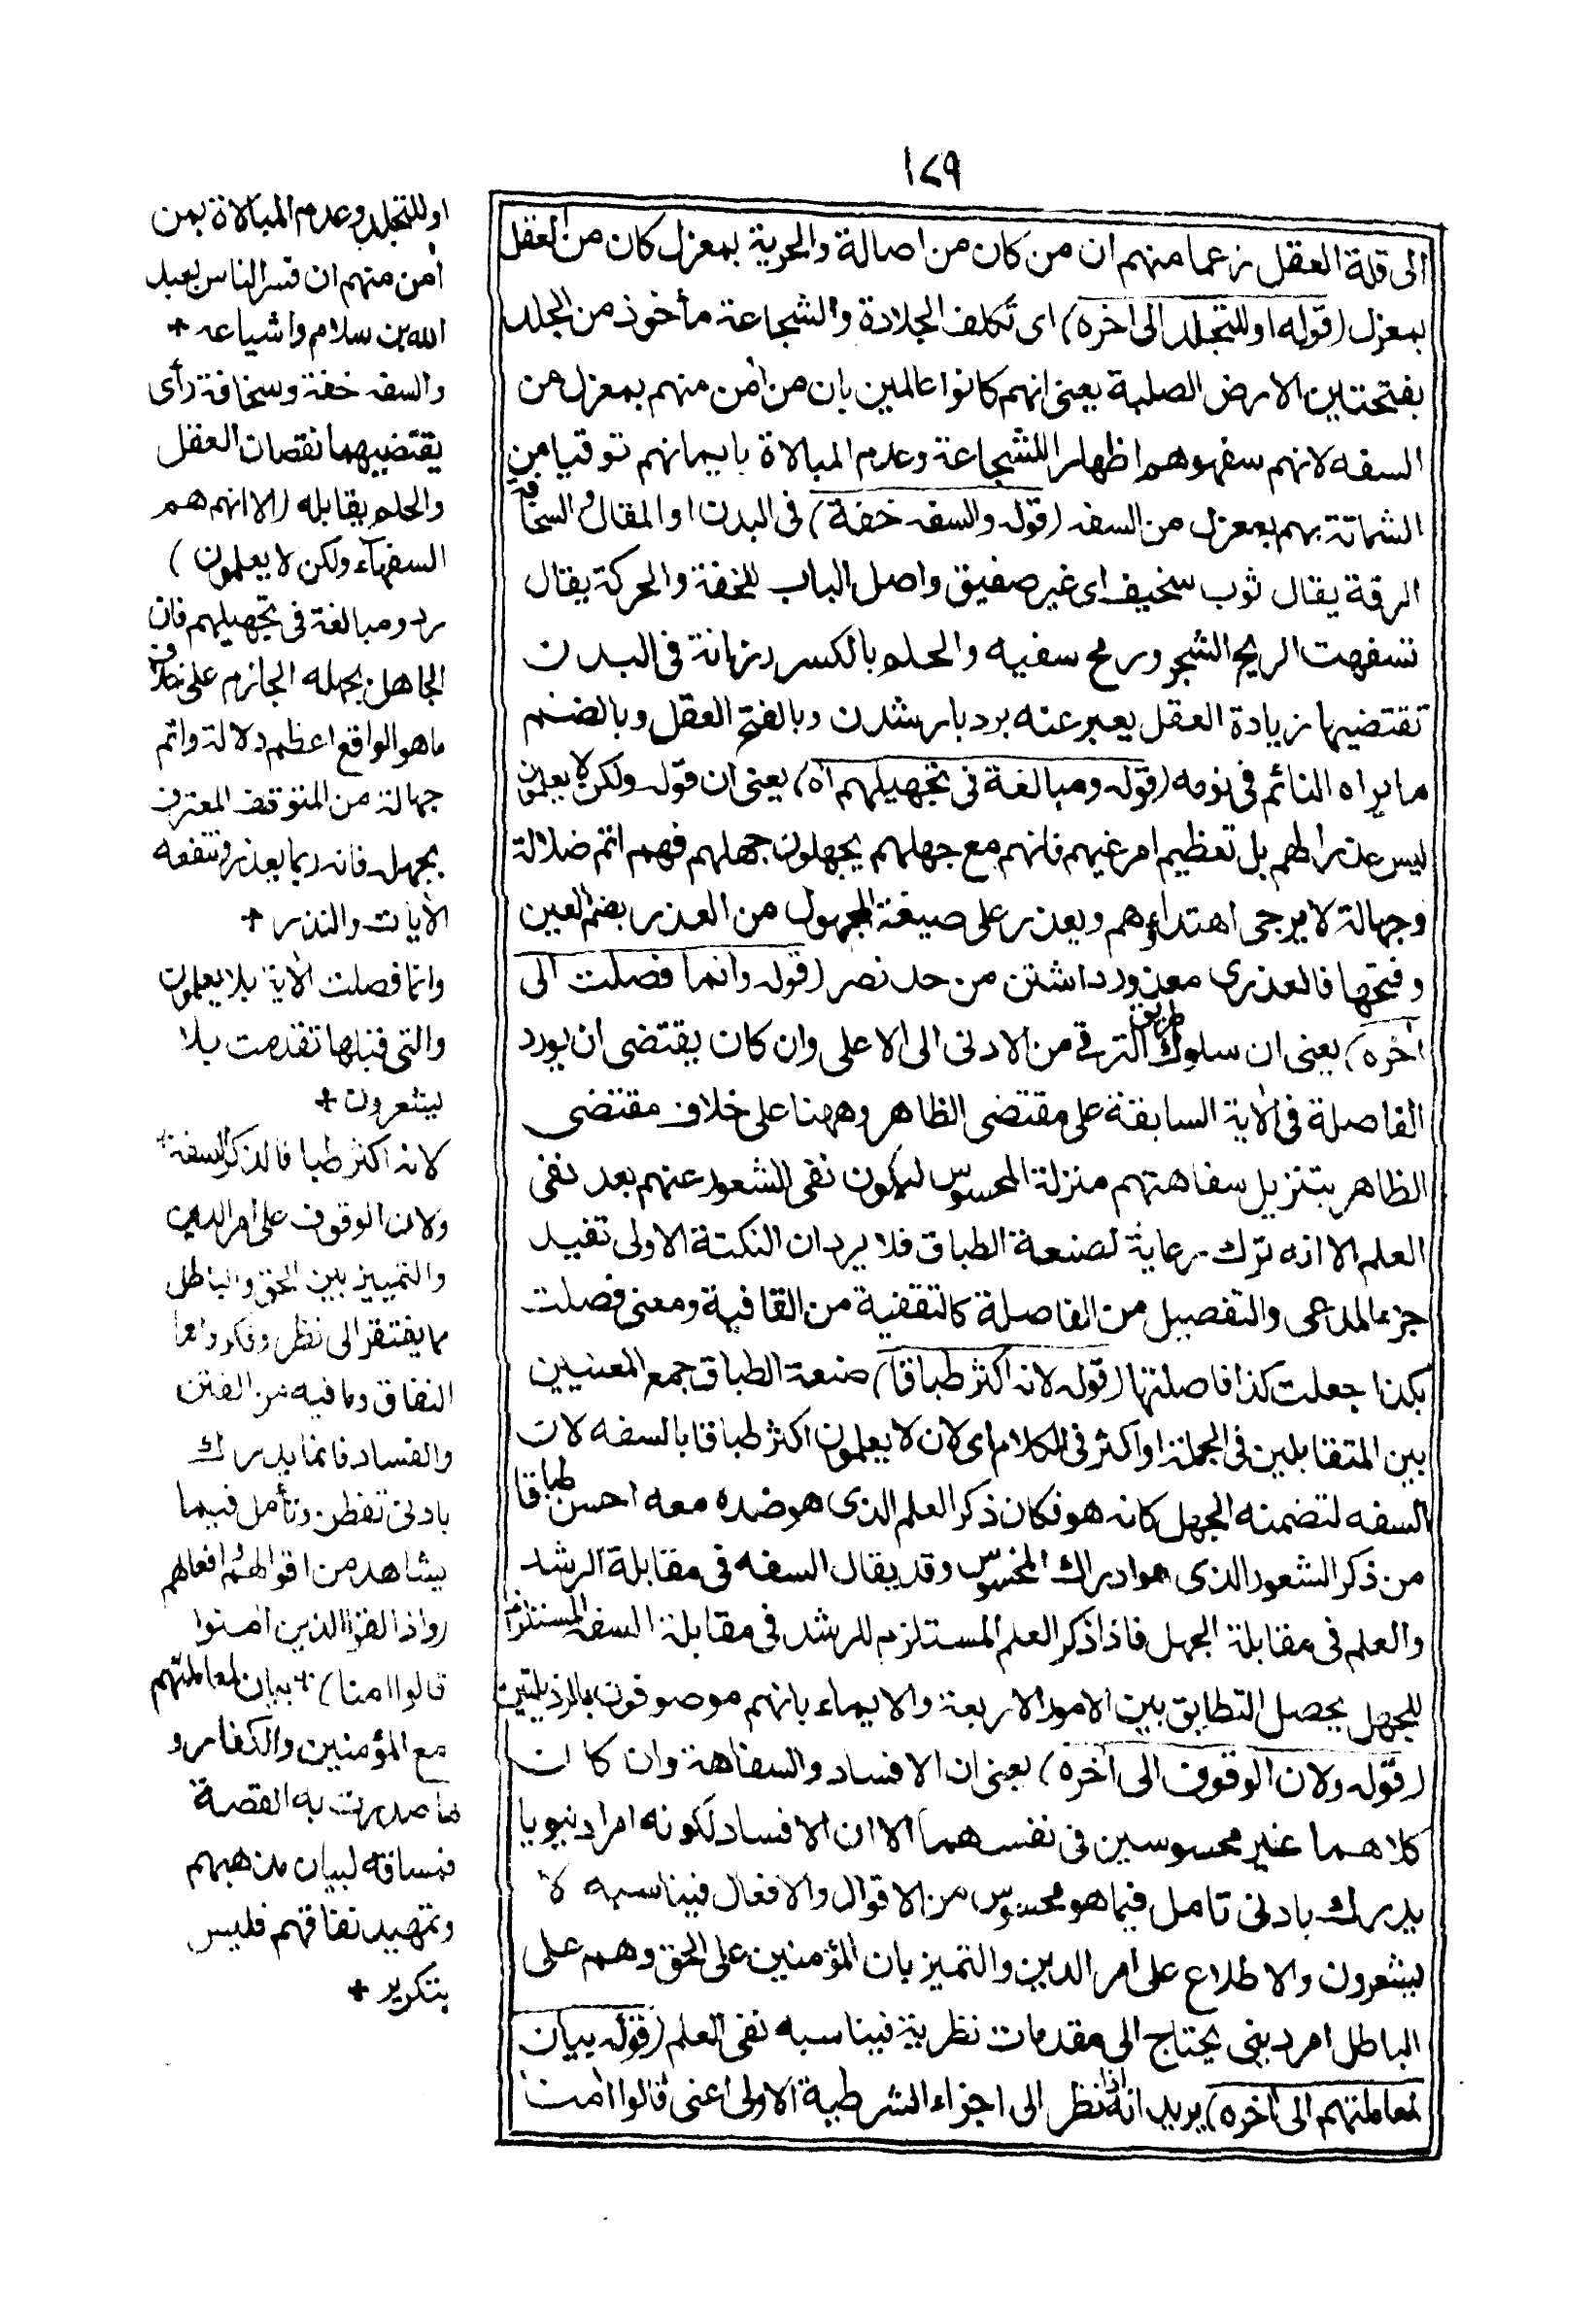 ١٧٩
الى قلة العقل زعما منهم ان من كان من اصالة والحرية بمعزل كان من العقل
بمعزل (قوله او للتجلد الى اخره) اى تكلف الجلادة والشجاعة مأخوذ من الجلد
بفتحتين الارض الصلبة يعنى انهم كانوا عالمين بان من اٰمن منهم بمعزل من
السفه لانهم سفهوهم اظهارا للشجاعة وعدم المبالاة بايمانهم توقيا من
الشماتة بهم بمعزل من السفه (قوله والسفه خفة) فى البدن او المقال والسخافة
الرقة يقال ثوب سخيف اى غير صفيق واصل الباب للخفة والحركة يقال
تسفهت الريح الشجر ورمح سفيه والحلم بالكسر رزانة فى البدن
تقتضيها زيادة العقل يعبر عنه بردبار شدن وبالفتح العقل وبالضم
ما يراه النائم فى نومه (قوله ومبالغة فى تجهيلهم اٰه) يعنى ان قوله ولكن لا يعلمون
ليس عذرا لهم بل تعظيم امر غيهم فانهم مع جهلهم يجهلون جهلهم فهم اتم ضلالة
وجهالة لا يرجى اهتداؤهم ويعذر على صيغة المجهول من العذر بضم العين
وفتحها فالعذرى معذور داشتن من حد نصر (قوله وانما فصلت الى
اٰخره) يعنى ان سلوك طريق الترقى من الادنى الى الاعلى وان كان يقتضى ان يورد
الفاصلة فى الاٰية السابقة على مقتضى الظاهر وههنا على خلاف مقتضى
الظاهر بتنزيل سفاهتهم منزلة المحسوس ليكون نفى الشعور عنهم بعد نفى
العلم الا انه ترك رعاية لصنعة الطباق فلا يرد ان النكتة الاولى تفيد
جزء المدعى والتفصيل من الفاصلة كالتقفية من القافية ومعنى فصلت
بكذا جعلت كذا فاصلتها (قوله لانه اكثر طباقا) صنعة الطباق جمع المعنيين
بين المتقابلين فى الجملة او اكثر فى الكلام اى لان لا يعلمون اكثر طباقا بالسفه لان
السفه لتضمنه الجهل كانه هو فكان ذكر العلم الذى هو ضده معه احسن طباقا
من ذكر الشعور الذى هو ادراك المحسوس وقد يقال السفه فى مقابلة الرشد
والعلم فى مقابلة الجهل فاذا ذكر العلم المستلزم للرشد فى مقابلة السفه المستلزم
للجهل يحصل التطابق بين الامور الاربعة والايماء بانهم موصوفون بالرذيلتين
(قوله ولان الوقوف الى اٰخره) يعنى ان الافساد والسفاهة وان كان
كلاهما غير محسوسين فى نفسهما الا ان الافساد لكونه امرا دنيويا
يدرك بادنى تامل فيما هو محسوس من الاقوال والافعال فيناسبه لا
يشعرون والاطلاع على امر الدين والتميز بان المؤمنين على الحق وهم على
الباطل امر دينى يحتاج الى مقدمات نظرية فيناسبه نفى العلم (قوله بيان
لمعاملتهم الى اٰخره) يريد انه اذا نظر الى اجزاء الشرطية الاولى اعنى قالوا اٰمنا
او للتجلد وعدم المبالاة بمن
اٰمن منهم ان فسر الناس بعبد
الله بن سلام واشياعه +
والسفه خفة وسخافة رأى
يقتضيهما نقصان العقل
والحلم يقابله (الا انهم هم
السفهاۤء ولكن لا يعلمون)
رد ومبالغة فى تجهيلهم فان
الجاهل بجهله الجازم على خلاف
ما هو الواقع اعظم دلالة واتم
جهالة من المتوقف المعترف
بجهله فانه ربما يعذر وتنفعه
الاٰيات والنذر +
وانما فصلت الاٰية بلا يعلمون
والتى قبلها تقدمت بلا
يشعرون +
لانه اكثر طباقا لذكر السفه
ولان الوقوف على امر الدين
والتمييز بين الحق والباطل
مما يفتقر الى نظر وفكر واما
النفاق وما فيه من الفتن
والفساد فانما يدرك
بادنى تفطن وتأمل فيما
يشاهد من اقوالهم وافعالهم
(واذا لقوا الذين اٰمنوا
قالوا اٰمنا) + بيان لمعاملتهم
مع المؤمنين والكفار و
ما صدرت به القصة
فمساقه لبيان مذهبهم
وتمهيد نفاقهم فليس
بتكرير +